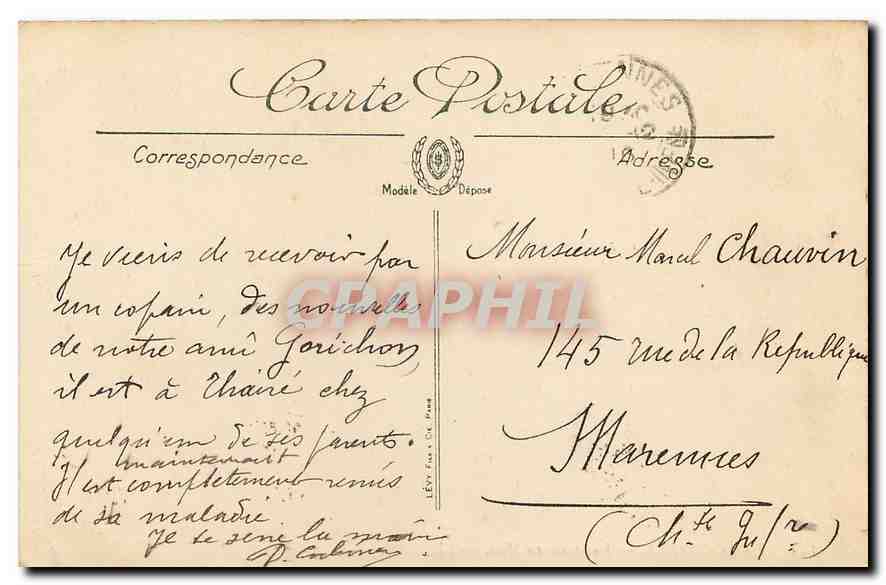 Carte Postale
Correspondance
Adresse
Modèle Déposé
NNES
Je viens de recevoir par
un copain, des nouvelles
de notre ami Gorichon,
il est à Thairé chez
quelqu'un de ses parents.
maintenant
Il est complètement remis
de sa maladie.
Je te serre la main
LÉVY FILS & CIE, PARIS
Monsieur Marcel Chauvin
145 rue de la République
Marennes
(Ch.te Inf.re)
CPAPHIL